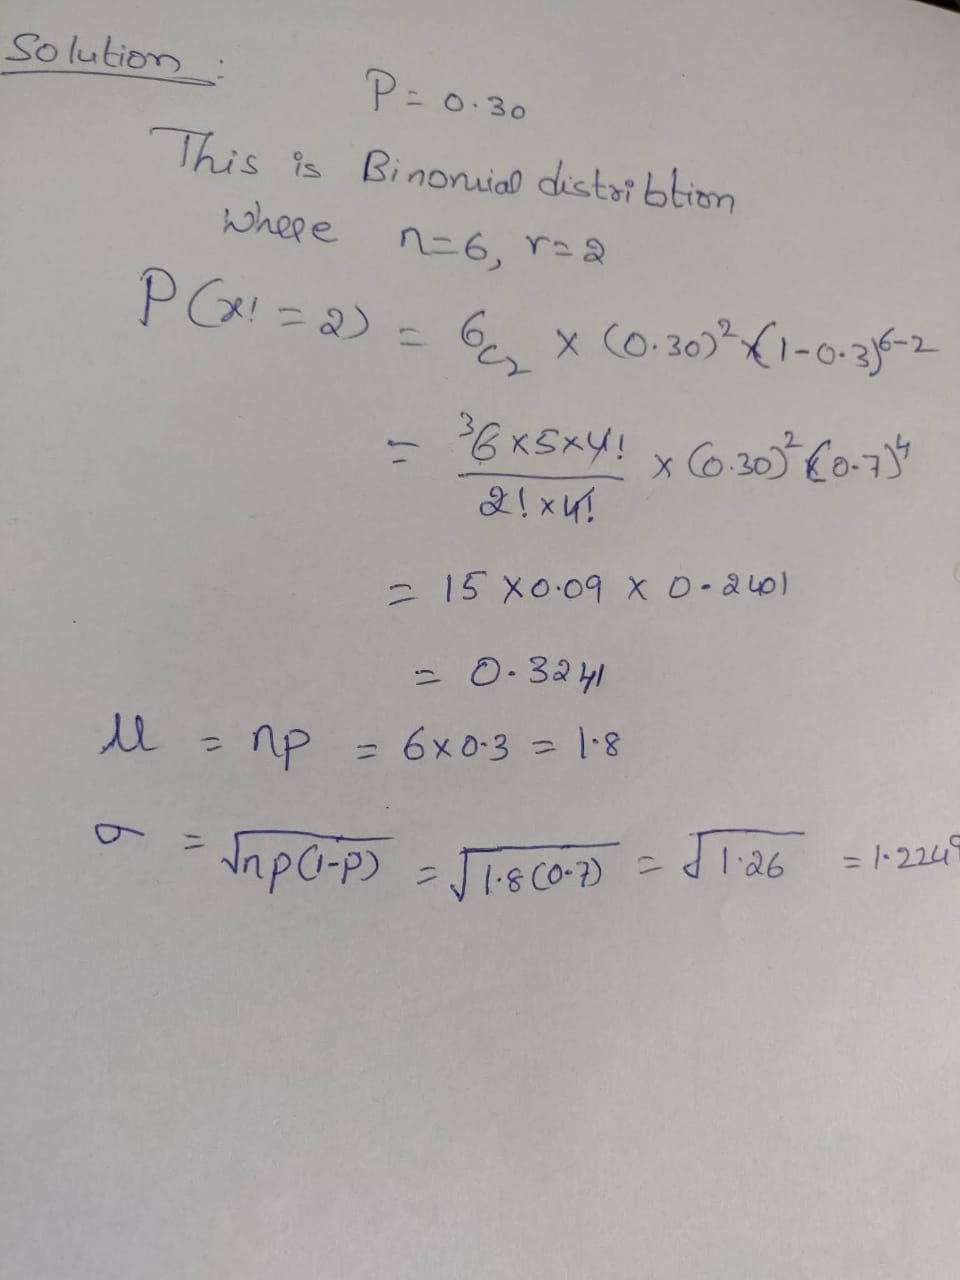 Solution :
P = 0.30
This is Binomial distribtion
where n=6, r=2
P(x! = 2) = 6c2 × (0.30)²×(1-0.3)⁶⁻²
= ³6×5×4! / 2!×4! × (0.30)²×(0.7)⁴
= 15 ×0.09 × 0.2401
= 0.3241
μ = np = 6×0.3 = 1.8
σ = √np(1-p) = √1.8(0.7) = √1.26 = 1.2249